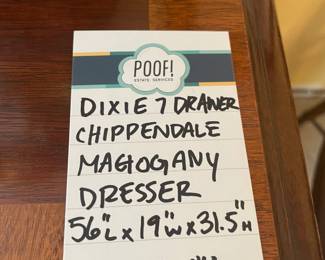 POOF!
ESTATE SERVICES
DIXIE 7 DRAWER
CHIPPENDALE
MAHOGANY
DRESSER
56"L x 19"W x 31.5"H